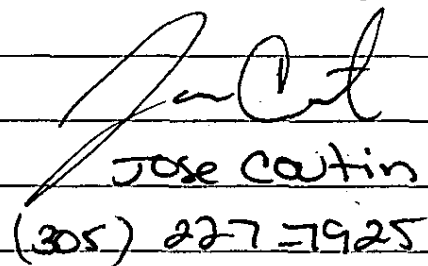 Jose Coutin
(305) 227-7925